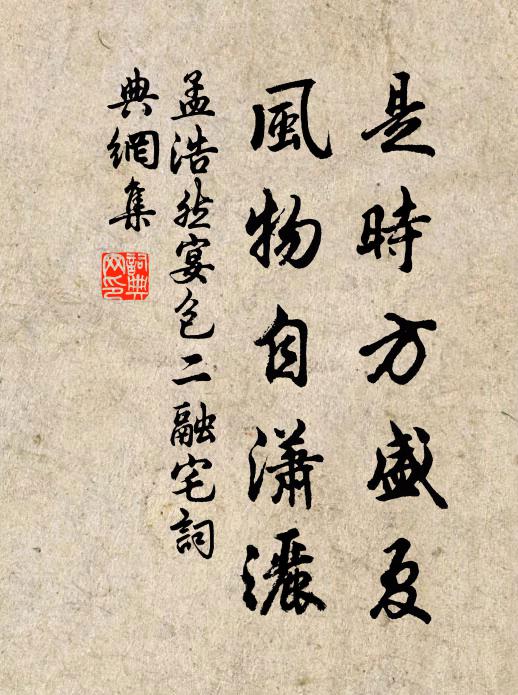 是時方盛夏
風物自瀟灑
孟浩然宴包二融宅詞
典網集
詞典網印